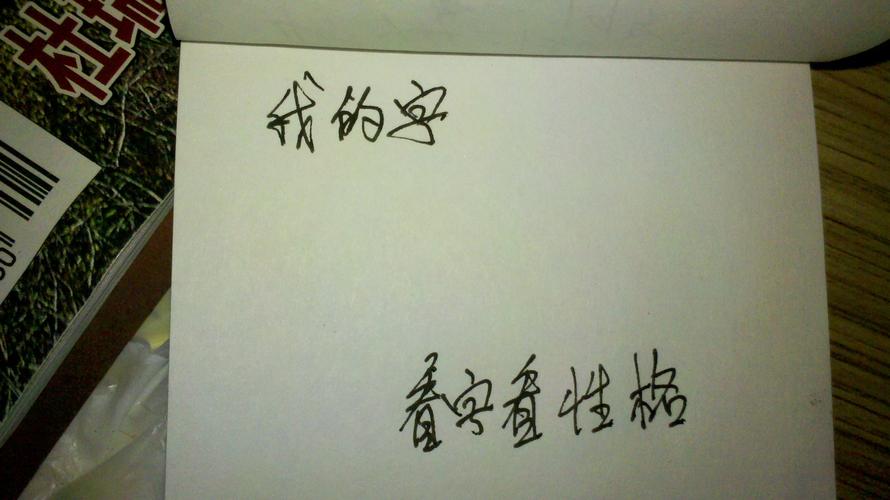 我的字
看字看性格